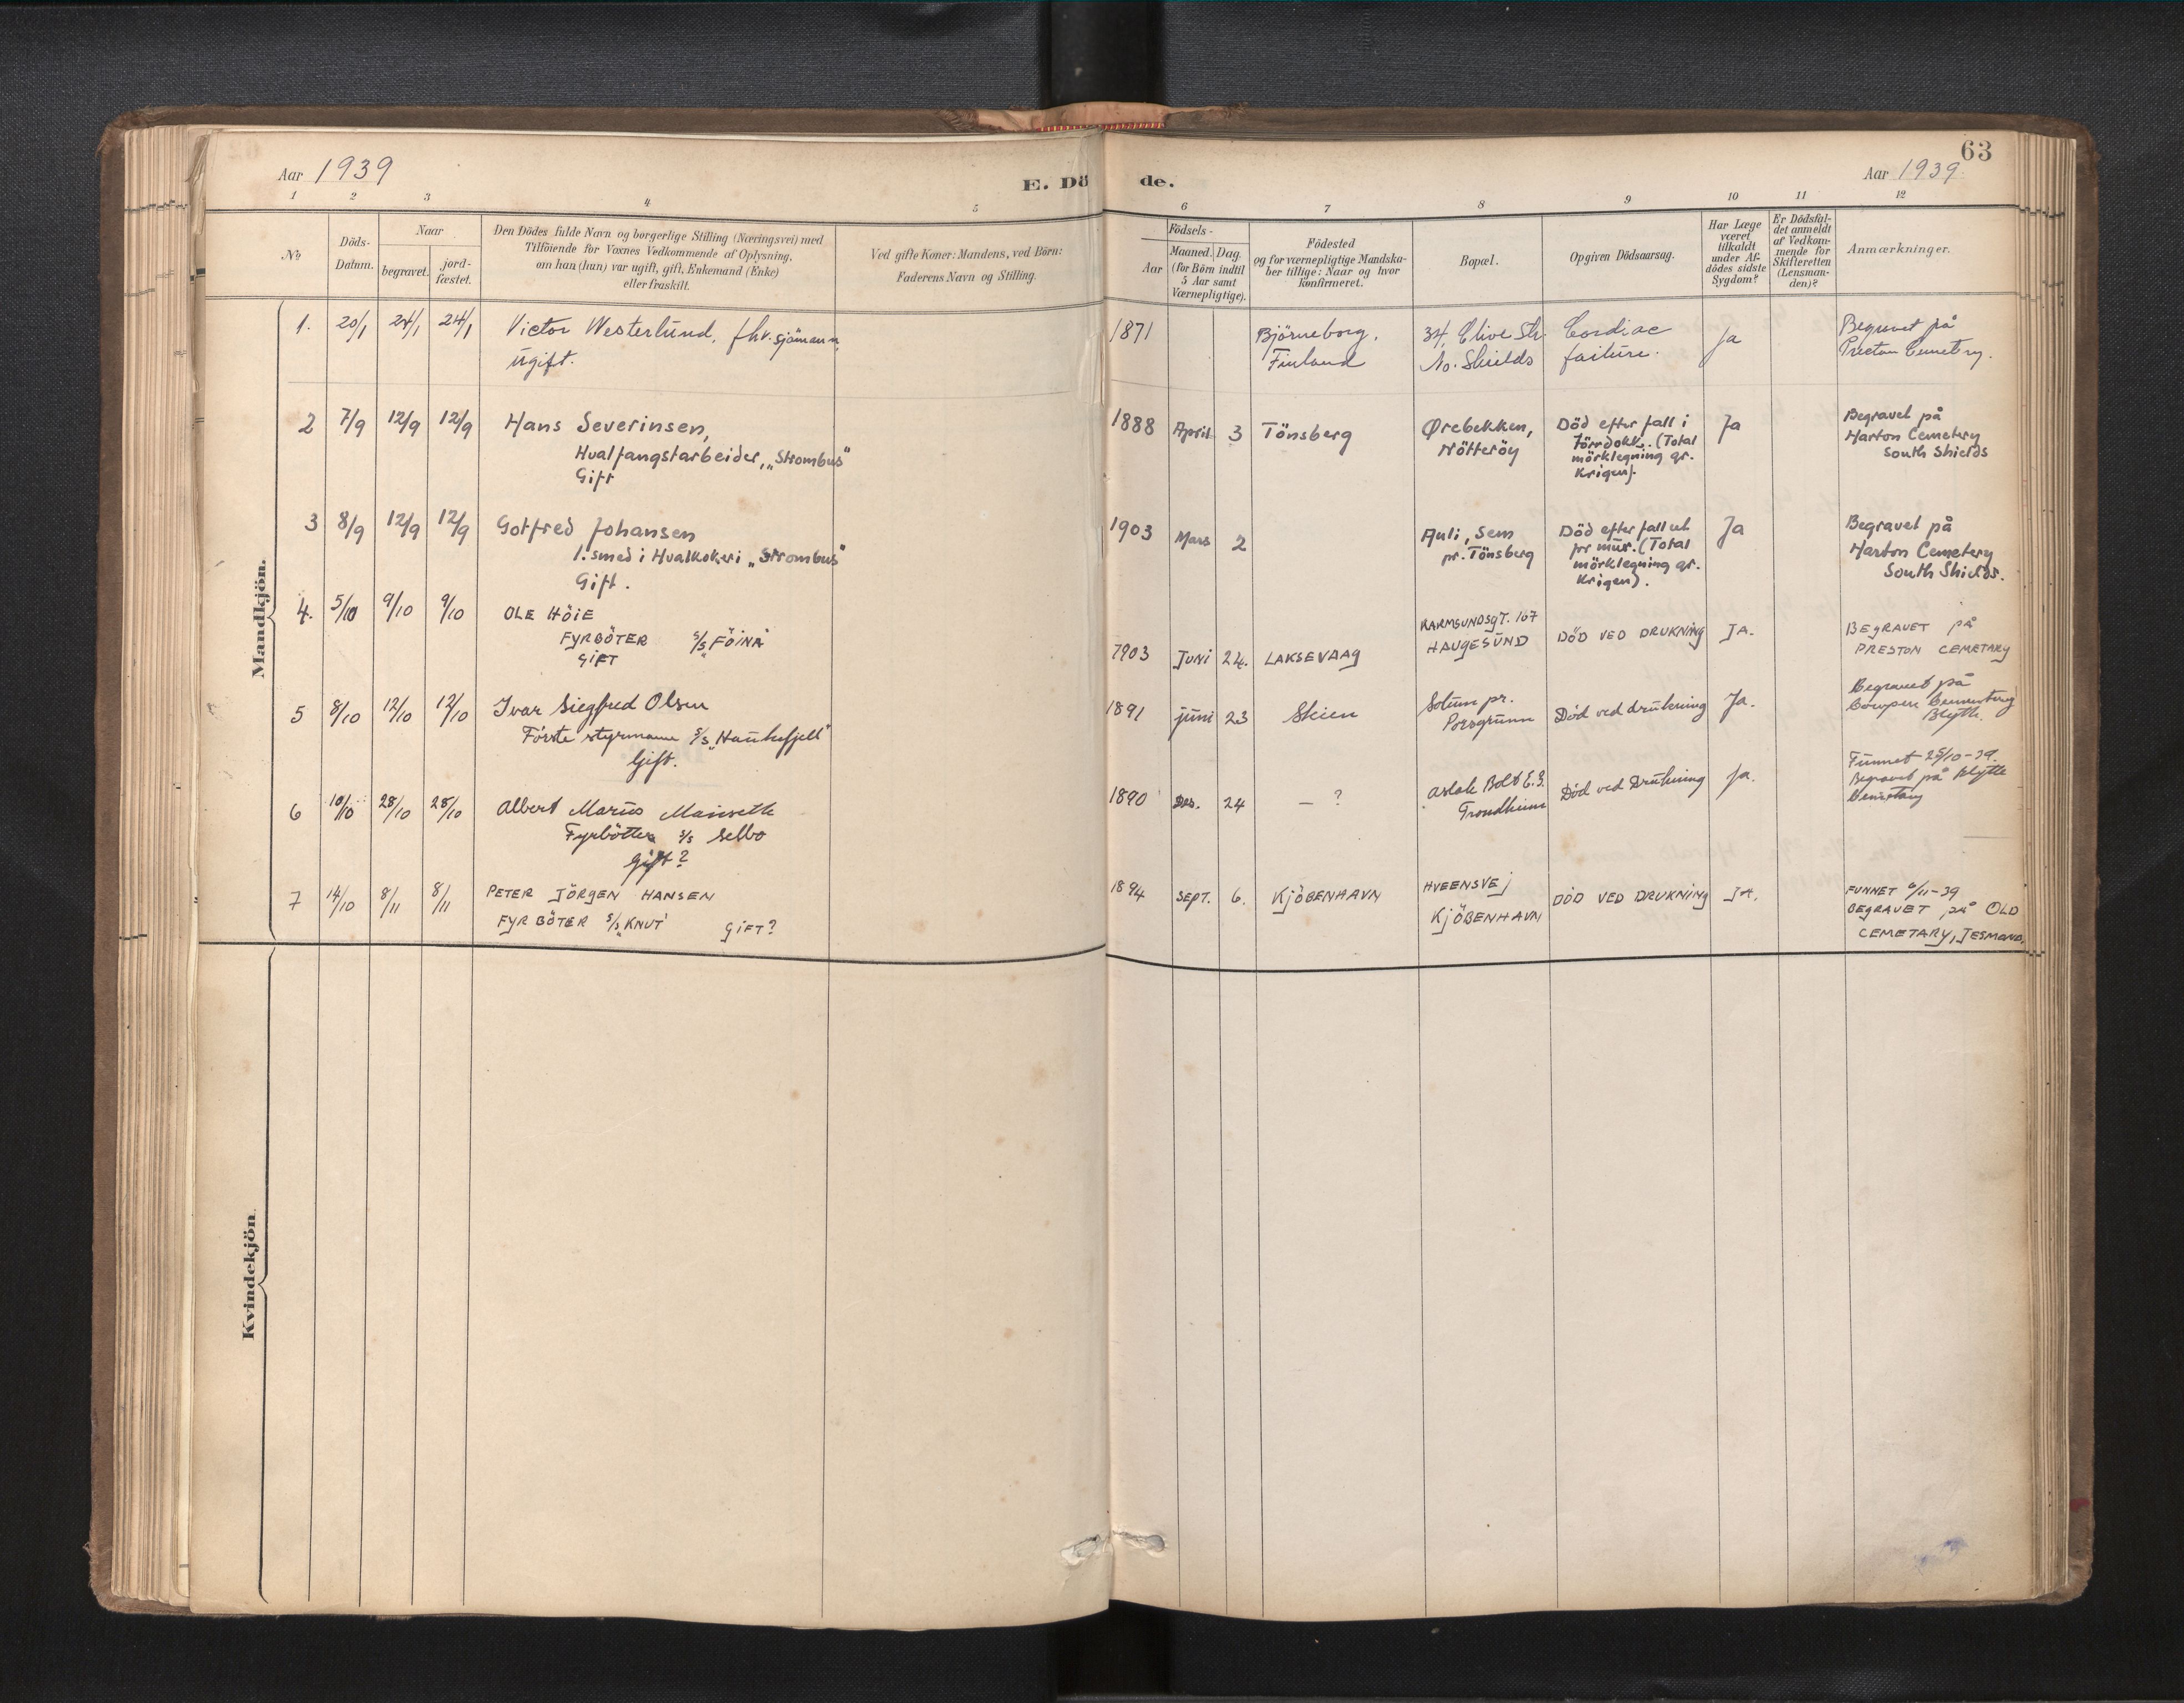 Aar 1939
E. Döde.
63
Aar 1939
1 2 3 4 5 6 7 8 9 10 11 12
No
Döds-
Datum.
Naar
begravet.
jord-
fæstet.
Den Dödes fulde Navn og borgerlige Stilling (Næringsvei) med
Tilföiende for Voxnes Vedkommende af Oplysning,
om han (hun) var ugift, gift, Enkemand (Enke)
eller fraskilt.
Ved gifte Koner: Mandens, ved Börn:
Faderens Navn og Stilling.
Födsels-
Aar
Maaned. Dag.
(for Börn indtil
5 Aar samt
Værnepligtige).
Födested
og for værnepligtige Mandska-
ber tillige: Naar og hvor
konfirmeret.
Bopæl.
Opgiven Dödsaarsag.
Har Læge
været
tilkaldt
under Af-
dödes sidste
Sygdom?
Er Dödsfal-
det anmeldt
af Vedkom-
mende for
Skifteretten
(Lensman-
den)?
Anmærkninger.
Mandkjön.
1. 20/1 24/1 24/1 Victor Westerlund, fhv. sjömann,
ugift.
1871
Björneborg,
Finland
34, Clive Str.
No. Shields
Cardiac
failure.
Ja
Begravet på
Preston Cemetry.
2 7/9 12/9 12/9 Hans Severinsen,
Hvalfangstarbeider, „Strombus"
Gift
1888 April 3 Tönsberg
Ørebekken,
Nötteröy
Död efter fall i
törrdokk. (Total
mörklegning gr.
Krigen).
Ja
Begravet på
Harton Cemetery
South Shields
3 8/9 12/9 12/9 Gotfred Johansen
1. smed i Hvalkokeri „Strombus"
Gift.
1903 Mars 2
Auli, Sem
pr. Tönsberg
Död efter fall ut
pr mur. (Total
mörklegning gr.
Krigen).
Ja
Begravet på
Harton Cemetery
South Shields.
4. 5/10 9/10 9/10 OLE HÖIE
FYRBÖTER S/S „FÖINA"
GIFT
1903 JUNI 24. LAKSEVAAG
KARMSUNDSGT. 167
HAUGESUND
DÖD VED DRUKNING
JA.
BEGRAVET på
PRESTON CEMETARY
5 8/10 12/10 12/10 Ivar Siegfred Olsen
Förste styrmann S/S „Haukefjell"
Gift.
1891 juni 23 Skien
Solum pr.
Porsgrunn
Död ved drukning
Ja.
Begravet på
Cowpen Cemetery
Blyth.
6 10/10 28/10 28/10 Albert Marius
Fyrbötter S/S Selbo
Gift?
1890 Des. 24 — ?
Aslak Bolt E.3.
Trondheim
Död ved Drukning
Ja.
Funnet 25/10-39.
Begravet på Blyth
Cemetary
7 14/10 8/11 8/11 PETER JÖRGEN HANSEN
FYR BÖTER S/S „KNUT" GIFT?
1894 SEPT. 6. KJÖBENHAVN
HVEENSVEJ
KJÖBENHAVN
DÖD VED DRUKNING
JA.
FUNNET 6/11-39
BEGRAVET på OLD
CEMETARY, JESMOND.
Kvindekjön.